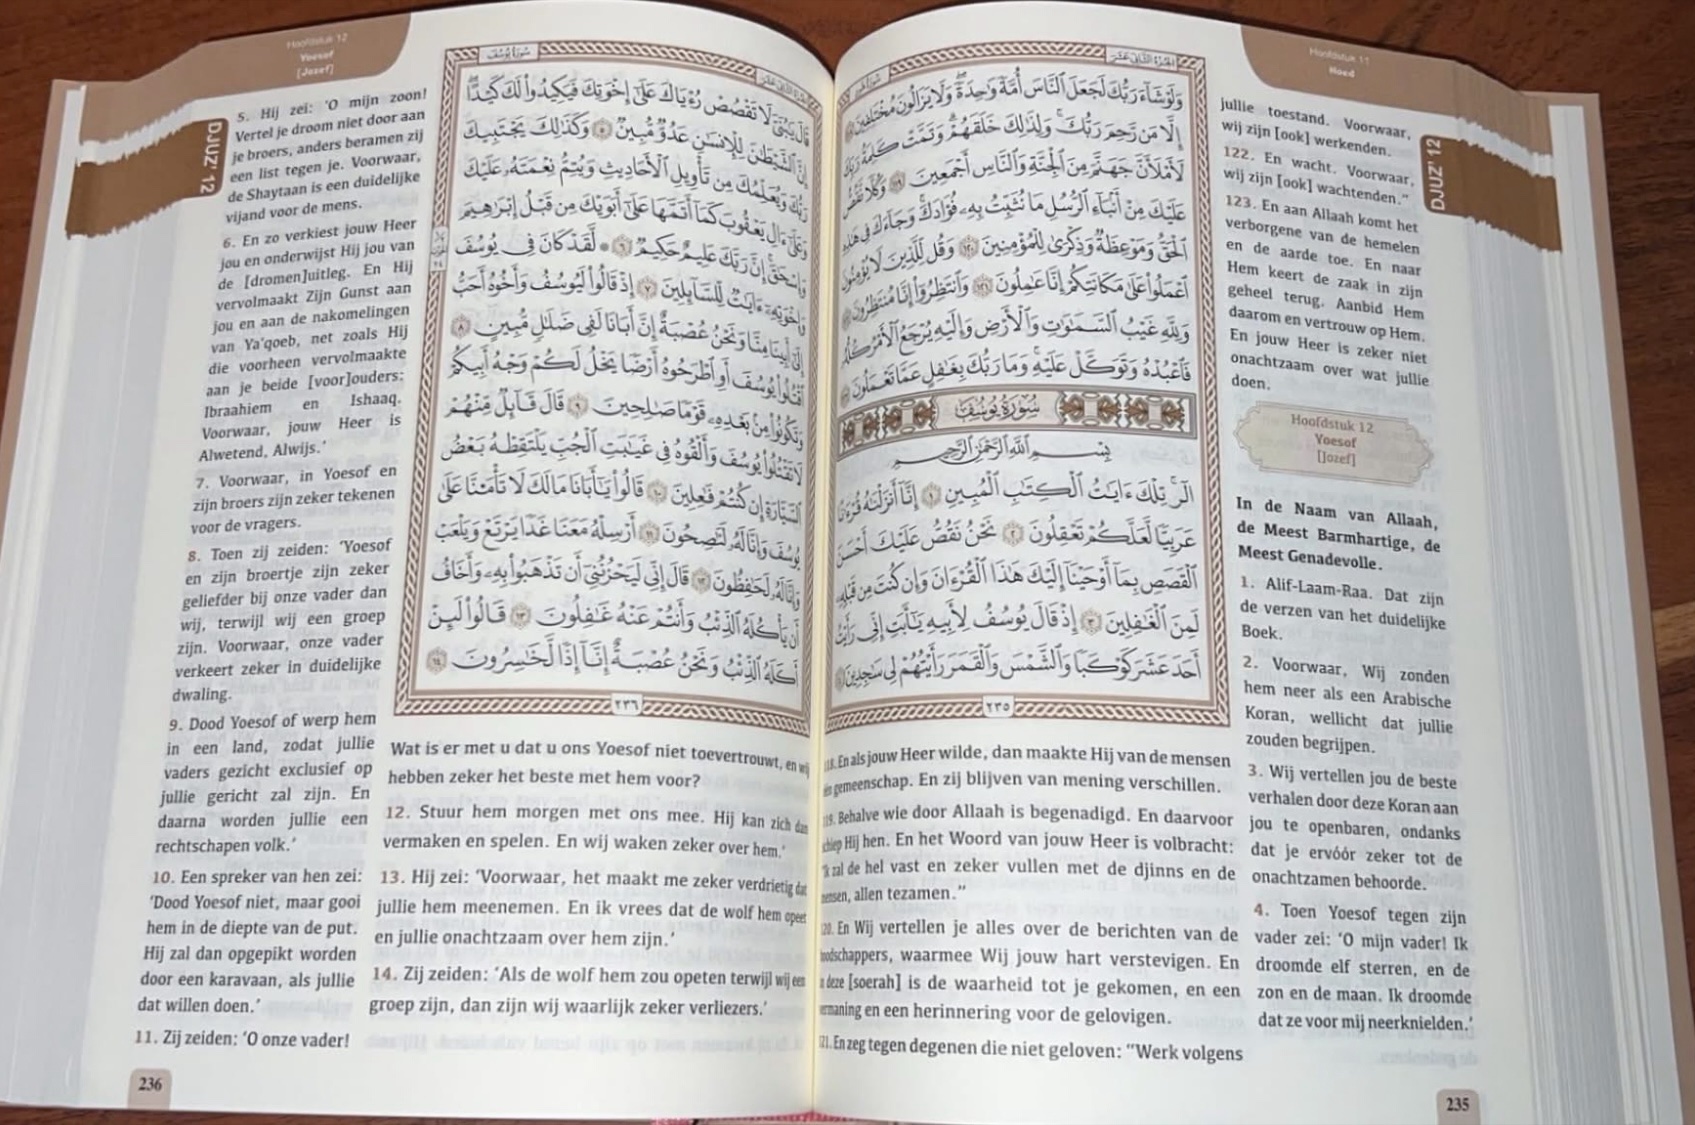 Hoofdstuk 11
Hoed
DJUZ' 12
وَلَوْ شَآءَ رَبُّكَ لَجَعَلَ ٱلنَّاسَ أُمَّةً وَٰحِدَةً ۖ وَلَا يَزَالُونَ مُخْتَلِفِينَ
إِلَّا مَن رَّحِمَ رَبُّكَ ۚ وَلِذَٰلِكَ خَلَقَهُمْ ۗ وَتَمَّتْ كَلِمَةُ رَبِّكَ
لَأَمْلَأَنَّ جَهَنَّمَ مِنَ ٱلْجِنَّةِ وَٱلنَّاسِ أَجْمَعِينَ ١١٩ وَكُلًّا نَّقُصُّ
عَلَيْكَ مِنْ أَنۢبَآءِ ٱلرُّسُلِ مَا نُثَبِّتُ بِهِۦ فُؤَادَكَ ۚ وَجَآءَكَ فِى هَٰذِهِ
ٱلْحَقُّ وَمَوْعِظَةٌ وَذِكْرَىٰ لِلْمُؤْمِنِينَ ١٢٠ وَقُل لِّلَّذِينَ لَا يُؤْمِنُونَ
ٱعْمَلُوا۟ عَلَىٰ مَكَانَتِكُمْ إِنَّا عَٰمِلُونَ ١٢١ وَٱنتَظِرُوٓا۟ إِنَّا مُنتَظِرُونَ
وَلِلَّهِ غَيْبُ ٱلسَّمَٰوَٰتِ وَٱلْأَرْضِ وَإِلَيْهِ يُرْجَعُ ٱلْأَمْرُ كُلُّهُۥ
فَٱعْبُدْهُ وَتَوَكَّلْ عَلَيْهِ ۚ وَمَا رَبُّكَ بِغَٰفِلٍ عَمَّا تَعْمَلُونَ
سُورَةُ يُوسُفَ
بِسْمِ ٱللَّهِ ٱلرَّحْمَٰنِ ٱلرَّحِيمِ
الٓر ۚ تِلْكَ ءَايَٰتُ ٱلْكِتَٰبِ ٱلْمُبِينِ ١ إِنَّآ أَنزَلْنَٰهُ قُرْءَٰنًا
عَرَبِيًّا لَّعَلَّكُمْ تَعْقِلُونَ ٢ نَحْنُ نَقُصُّ عَلَيْكَ أَحْسَنَ
ٱلْقَصَصِ بِمَآ أَوْحَيْنَآ إِلَيْكَ هَٰذَا ٱلْقُرْءَانَ وَإِن كُنتَ مِن قَبْلِهِۦ
لَمِنَ ٱلْغَٰفِلِينَ ٣ إِذْ قَالَ يُوسُفُ لِأَبِيهِ يَٰٓأَبَتِ إِنِّى رَأَيْتُ
أَحَدَ عَشَرَ كَوْكَبًا وَٱلشَّمْسَ وَٱلْقَمَرَ رَأَيْتُهُمْ لِى سَٰجِدِينَ ٤
٢٣٥
En als jouw Heer wilde, dan maakte Hij van de mensen
gemeenschap. En zij blijven van mening verschillen.
Behalve wie door Allaah is begenadigd. En daarvoor
Hij hen. En het Woord van jouw Heer is volbracht:
zal de hel vast en zeker vullen met de djinns en de
allen tezamen.”
En Wij vertellen je alles over de berichten van de
waarmee Wij jouw hart verstevigen. En
deze [soerah] is de waarheid tot je gekomen, en een
en een herinnering voor de gelovigen.
En zeg tegen degenen die niet geloven: “Werk volgens
jullie toestand. Voorwaar,
wij zijn [ook] werkenden.
122. En wacht. Voorwaar,
wij zijn [ook] wachtenden.”
123. En aan Allaah komt het
verborgene van de hemelen
en de aarde toe. En naar
Hem keert de zaak in zijn
geheel terug. Aanbid Hem
daarom en vertrouw op Hem.
En jouw Heer is zeker niet
onachtzaam over wat jullie
doen.
Hoofdstuk 12
Yoesof
[Jozef]
In de Naam van Allaah,
de Meest Barmhartige, de
Meest Genadevolle.
1. Alif-Laam-Raa. Dat zijn
de verzen van het duidelijke
Boek.
2. Voorwaar, Wij zonden
hem neer als een Arabische
Koran, wellicht dat jullie
zouden begrijpen.
3. Wij vertellen jou de beste
verhalen door deze Koran aan
jou te openbaren, ondanks
dat je ervóór zeker tot de
onachtzamen behoorde.
4. Toen Yoesof tegen zijn
vader zei: ‘O mijn vader! Ik
droomde elf sterren, en de
zon en de maan. Ik droomde
dat ze voor mij neerknielden.’
235
Hoofdstuk 12
Yoesof
[Jozef]
DJUZ' 12
سُورَةُ يُوسُفَ
قَالَ يَٰبُنَىَّ لَا تَقْصُصْ رُءْيَاكَ عَلَىٰٓ إِخْوَتِكَ فَيَكِيدُوا۟ لَكَ كَيْدًا ۖ
إِنَّ ٱلشَّيْطَٰنَ لِلْإِنسَٰنِ عَدُوٌّ مُّبِينٌ ٥ وَكَذَٰلِكَ يَجْتَبِيكَ
رَبُّكَ وَيُعَلِّمُكَ مِن تَأْوِيلِ ٱلْأَحَادِيثِ وَيُتِمُّ نِعْمَتَهُۥ عَلَيْكَ
وَعَلَىٰٓ ءَالِ يَعْقُوبَ كَمَآ أَتَمَّهَا عَلَىٰٓ أَبَوَيْكَ مِن قَبْلُ إِبْرَٰهِيمَ
وَإِسْحَٰقَ ۚ إِنَّ رَبَّكَ عَلِيمٌ حَكِيمٌ ٦ ۞ لَّقَدْ كَانَ فِى يُوسُفَ
وَإِخْوَتِهِۦٓ ءَايَٰتٌ لِّلسَّآئِلِينَ ٧ إِذْ قَالُوا۟ لَيُوسُفُ وَأَخُوهُ أَحَبُّ
إِلَىٰٓ أَبِينَا مِنَّا وَنَحْنُ عُصْبَةٌ إِنَّ أَبَانَا لَفِى ضَلَٰلٍ مُّبِينٍ ٨
ٱقْتُلُوا۟ يُوسُفَ أَوِ ٱطْرَحُوهُ أَرْضًا يَخْلُ لَكُمْ وَجْهُ أَبِيكُمْ
وَتَكُونُوا۟ مِنۢ بَعْدِهِۦ قَوْمًا صَٰلِحِينَ ٩ قَالَ قَآئِلٌ مِّنْهُمْ
لَا تَقْتُلُوا۟ يُوسُفَ وَأَلْقُوهُ فِى غَيَٰبَتِ ٱلْجُبِّ يَلْتَقِطْهُ بَعْضُ
ٱلسَّيَّارَةِ إِن كُنتُمْ فَٰعِلِينَ ١٠ قَالُوا۟ يَٰٓأَبَانَا مَا لَكَ لَا تَأْمَ۫نَّا عَلَىٰ
يُوسُفَ وَإِنَّا لَهُۥ لَنَٰصِحُونَ ١١ أَرْسِلْهُ مَعَنَا غَدًا يَرْتَعْ وَيَلْعَبْ
وَإِنَّا لَهُۥ لَحَٰفِظُونَ ١٢ قَالَ إِنِّى لَيَحْزُنُنِىٓ أَن تَذْهَبُوا۟ بِهِۦ وَأَخَافُ
أَن يَأْكُلَهُ ٱلذِّئْبُ وَأَنتُمْ عَنْهُ غَٰفِلُونَ ١٣ قَالُوا۟ لَئِنْ
أَكَلَهُ ٱلذِّئْبُ وَنَحْنُ عُصْبَةٌ إِنَّآ إِذًا لَّخَٰسِرُونَ ١٤
٢٣٦
5. Hij zei: ‘O mijn zoon!
Vertel je droom niet door aan
je broers, anders beramen zij
een list tegen je. Voorwaar,
de Shaytaan is een duidelijke
vijand voor de mens.
6. En zo verkiest jouw Heer
jou en onderwijst Hij jou van
de [dromen]uitleg. En Hij
vervolmaakt Zijn Gunst aan
jou en aan de nakomelingen
van Ya'qoeb, net zoals Hij
die voorheen vervolmaakte
aan je beide [voor]ouders:
Ibraahiem en Ishaaq.
Voorwaar, jouw Heer is
Alwetend, Alwijs.’
7. Voorwaar, in Yoesof en
zijn broers zijn zeker tekenen
voor de vragers.
8. Toen zij zeiden: ‘Yoesof
en zijn broertje zijn zeker
geliefder bij onze vader dan
wij, terwijl wij een groep
zijn. Voorwaar, onze vader
verkeert zeker in duidelijke
dwaling.
9. Dood Yoesof of werp hem
in een land, zodat jullie
vaders gezicht exclusief op
jullie gericht zal zijn. En
daarna worden jullie een
rechtschapen volk.’
10. Een spreker van hen zei:
‘Dood Yoesof niet, maar gooi
hem in de diepte van de put.
Hij zal dan opgepikt worden
door een karavaan, als jullie
dat willen doen.’
11. Zij zeiden: ‘O onze vader!
Wat is er met u dat u ons Yoesof niet toevertrouwt, en wij
hebben zeker het beste met hem voor?
12. Stuur hem morgen met ons mee. Hij kan zich dan
vermaken en spelen. En wij waken zeker over hem.’
13. Hij zei: ‘Voorwaar, het maakt me zeker verdrietig dat
jullie hem meenemen. En ik vrees dat de wolf hem opeet
en jullie onachtzaam over hem zijn.’
14. Zij zeiden: ‘Als de wolf hem zou opeten terwijl wij een
groep zijn, dan zijn wij waarlijk zeker verliezers.’
236